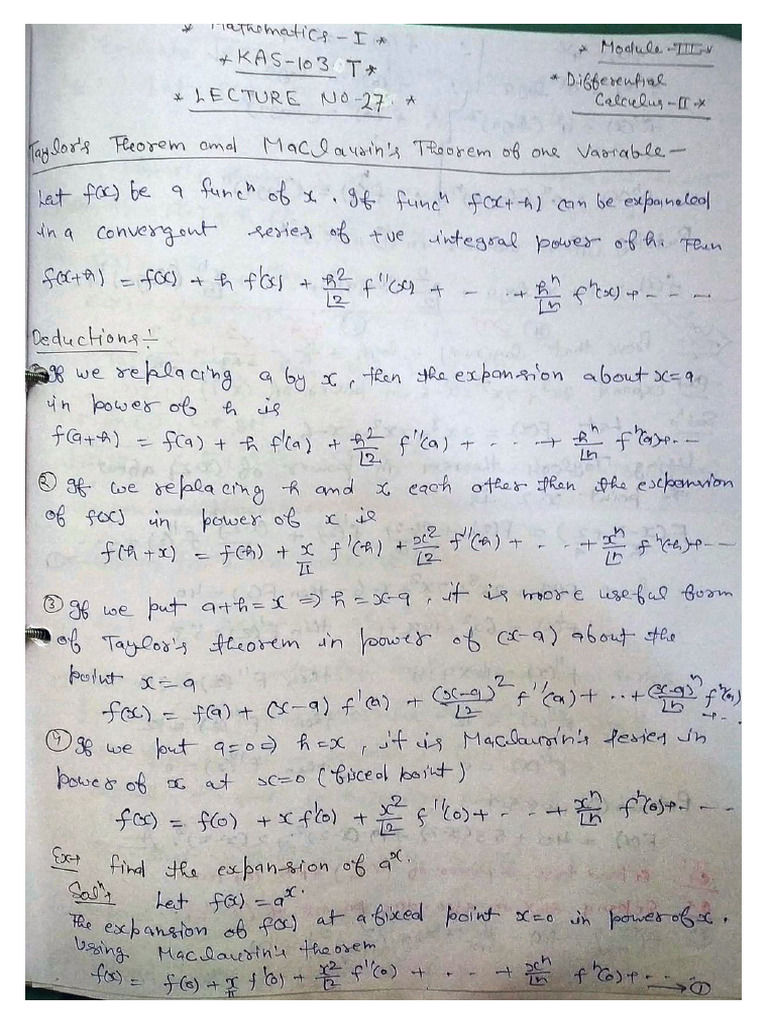 * Mathematics - I *
* KAS-103 T *
* LECTURE NO-27. *
* Module-III *
* Differential
Calculus-II *
Taylor's Theorem and Maclaurin's Theorem of one Variable -
Let f(x) be a funcⁿ of x. If funcⁿ f(x+h) can be expanded
in a convergent series of +ve integral power of h. Then
f(x+h) = f(x) + h f'(x) + h²/⌊2 f''(x) + - - .. + hⁿ/⌊n fⁿ(x) + - - - -
Deductions ÷
If we replacing a by x, then the expansion about x=a
in power of h is
f(a+h) = f(a) + h f'(a) + h²/⌊2 f''(a) + - - . + hⁿ/⌊n fⁿ(a)+ - -
② If we replacing h and x each other then the expansion
of f(x) in power of x is
f(h+x) = f(h) + x/⌊1 f'(h) + x²/⌊2 f''(h) + - - - + xⁿ/⌊n fⁿ(h)+ - - -
③ If we put a+h=x ⇒ h=x-a, it is more useful form
of Taylor's theorem in power of (x-a) about the
point x=a
f(x) = f(a) + (x-a) f'(a) + (x-a)²/⌊2 f''(a) + .. + (x-a)ⁿ/⌊n fⁿ(a) + - .
④ If we put a=0 ⇒ h=x, it is Maclaurin's series in
power of x at x=0 (fixed point)
f(x) = f(0) + x f'(0) + x²/⌊2 f''(0) + - - - + xⁿ/⌊n fⁿ(0)+ - - -
Ex→ find the expansion of aˣ.
Solⁿ→ Let f(x) = aˣ.
The expansion of f(x) at a fixed point x=0 in power of x.
Using Maclaurin's theorem
f(x) = f(0) + x/⌊1 f'(0) + x²/⌊2 f''(0) + - - - + xⁿ/⌊n fⁿ(0) + - - - → ①